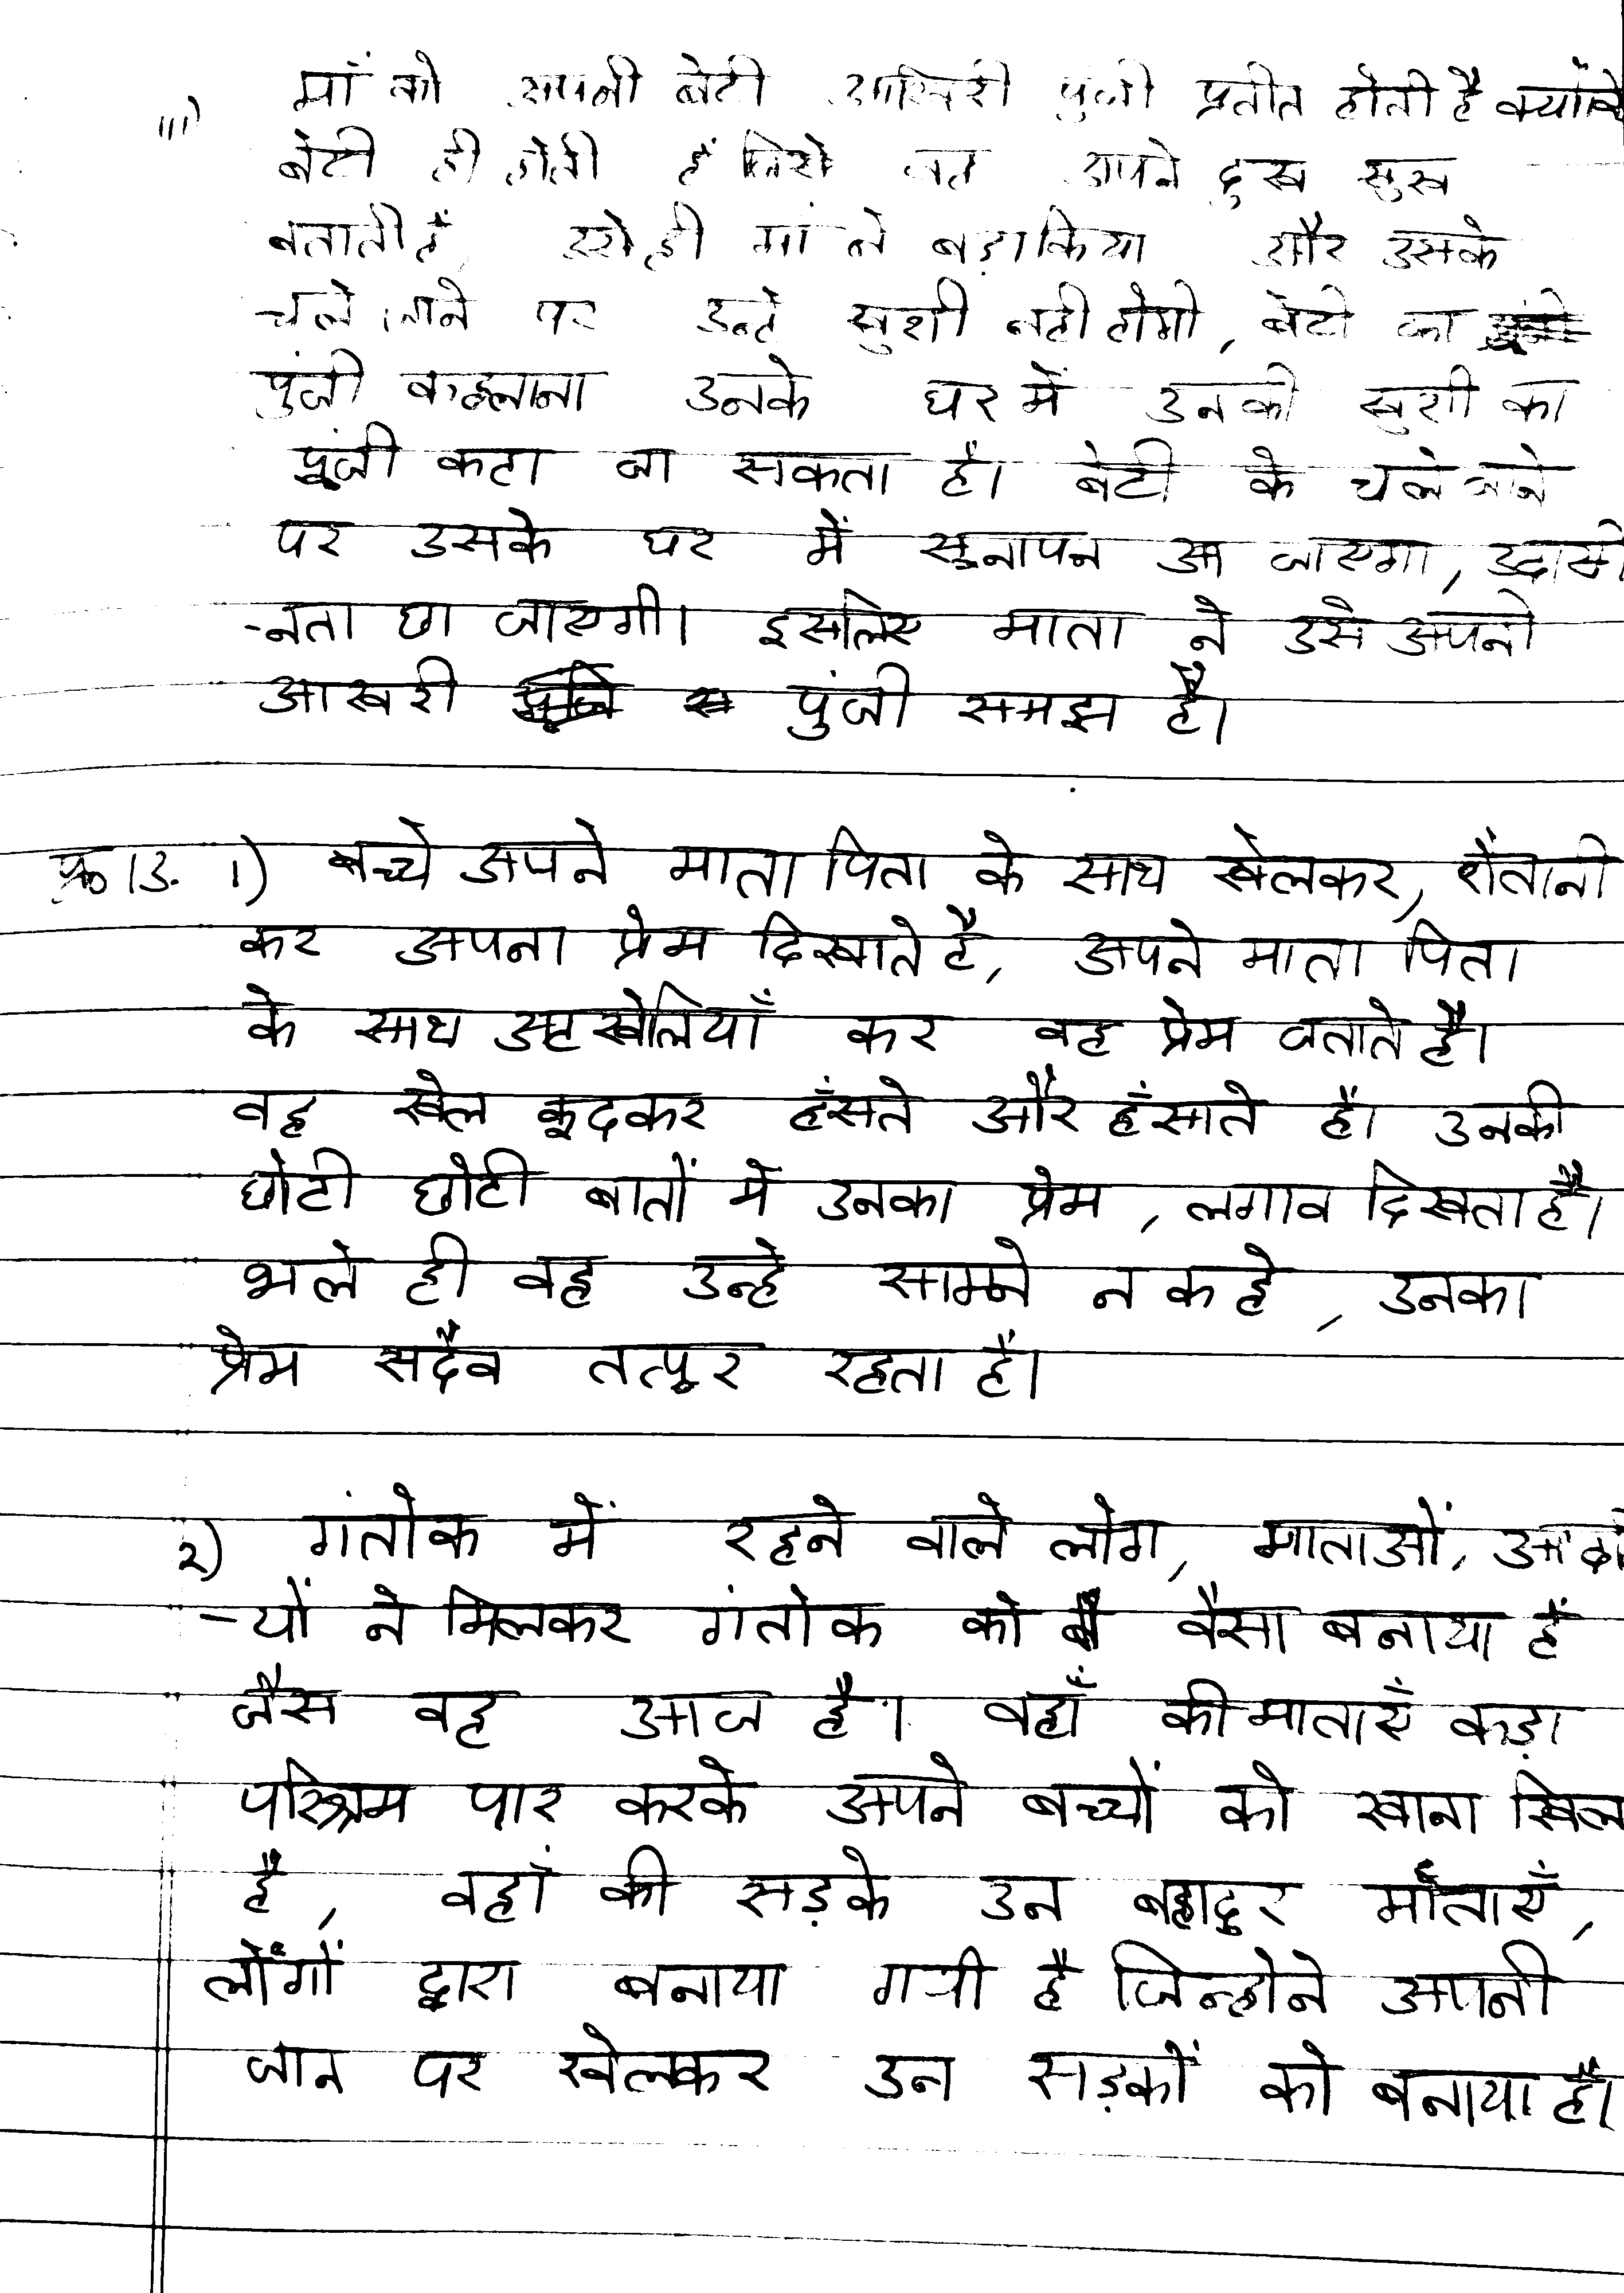 iii) मां को अपनी बेटी आखिरी पुंजी प्रतीत होती है क्योंकि
बेटी ही होती हैं जिसे वह अपने दुख सुख
बताती हैं, उसे ही मां ने बड़ा किया और उसके
चले जाने पर उन्हे खुशी नही होगी, बेटी का
पुंजी कहलाना उनके घर में उनकी खुशी का
पूंजी कहा जा सकता है। बेटी के चले जाने
पर उसके घर में सूनापन आ जाएगा, उदासी
-नता छा जाएगी। इसलिए माता ने उसे अपनी
आखरी पुंजी समझ है।
प्र० 13. 1) बच्चे अपने माता पिता के साथ खेलकर, शैतानी
कर अपना प्रेम दिखाते है, अपने माता पिता
के साथ अटखेलियाँ कर वह प्रेम जताते है।
वह खेल कूदकर हँसते और हँसाते है। उनकी
छोटी छोटी बातों में उनका प्रेम, लगाव दिखता है।
भले ही वह उन्हे सामने न कहे, उनका
प्रेम सदैव तत्पूर रहता है।
2) गंतोक में रहने वाले लोग, माताओं,
-यों ने मिलकर गंतोक को वैसा बनाया है
जैस वह आज है। वहाँ की माताएँ कड़ा
परिश्रम पार करके अपने बच्चों को खाना खिल
है, वहां की सड़के उन बहादुर माताएँ,
लोगों द्वारा बनाया गयी है जिन्होने अपनी
जान पर खेलकर उन सड़कों को बनाया है।